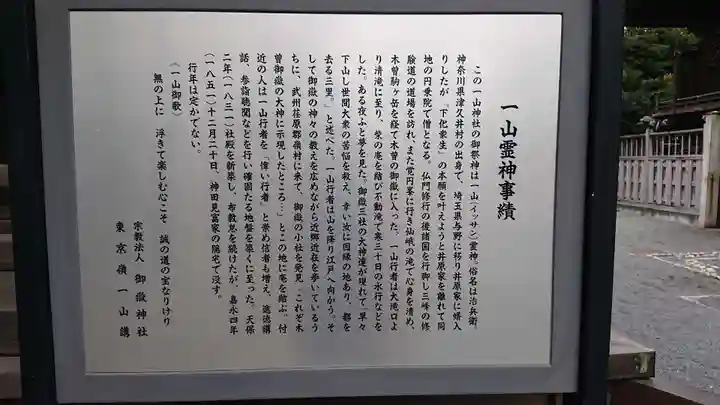 一山霊神事績
この一山神社の御祭神は一山（イッサン）霊神、俗名は治兵衛、
神奈川県津久井村の出身で、埼玉県与野に移り井原家に婿入
りしたが、「下化衆生」の本願を叶えようと井原家を離れて同
地の円乗院で僧となる。仏門修行の後諸国を行脚し三峰の修
験道の道場を訪れ、また覚円峯に行き仙峨の滝で心身を清め、
木曽駒ヶ岳を経て木曽の御嶽に入った。一山行者は大滝口よ
り清滝に至り、柴の庵を結び不動滝で寒三十日の水行などを
した。ある夜ふと夢を見た。御嶽三社の大神達が現れて「早々
下山し世間大衆の苦悩を救え、幸い汝に因縁の地あり、都を
去る三里。」と述べた。一山行者は山を降り江戸へ向かう。そ
して御嶽の神々の教えを広めながら近郷近在を歩いているう
ちに、武州荏原郡嶺村に来て、御嶽の小社を発見「これぞ木
曽御嶽の大神に示現したところ…」とこの地に庵を結ぶ。付
近の人は一山行者を「偉い行者」と崇め信者も増え、道徳講
話、参詣聴聞などを行い確固たる地盤を築くに至った。天保
二年（一八三一）社殿を新築し、布教怠を続けたが、嘉永四年
（一八五一）十二月二十日、神田見富家の隠宅で没す。
行年は定かでない。
《一山御歌》
無の上に　浮きて楽しむ心こそ　誠の道の宝なりけり
宗教法人　御嶽神社
東京嶺一山講